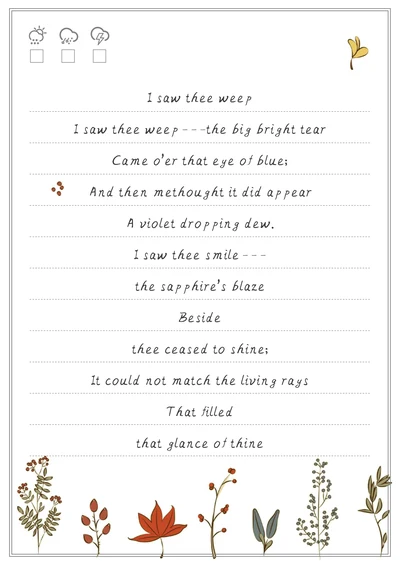 I saw thee weep
I saw thee weep---the big bright tear
Came o'er that eye of blue;
And then methought it did appear
A violet dropping dew.
I saw thee smile---
the sapphire's blaze
Beside
thee ceased to shine;
It could not match the living rays
That filled
that glance of thine